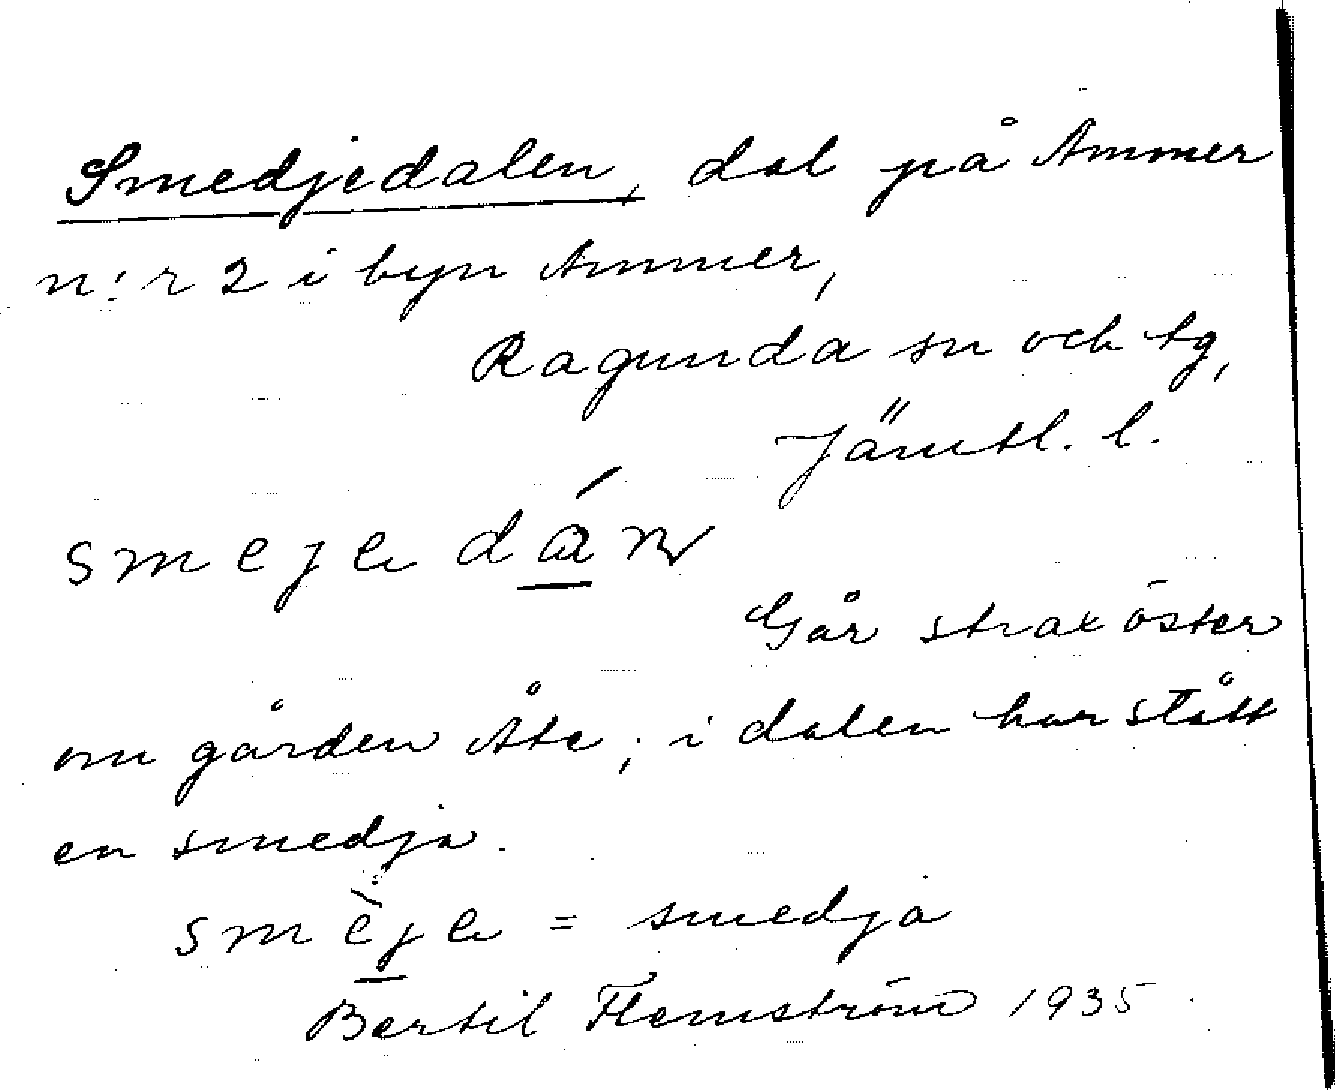 Smedjedalen, dal på Ammer
n:r 2 i byn Ammer,
Ragunda sn och tg,
Jämtl. l.
smeje dán
Går strax öster
om gården Åte; i dalen har stått
en smedja.
smèje = smedja
Bertil Flemström 1935